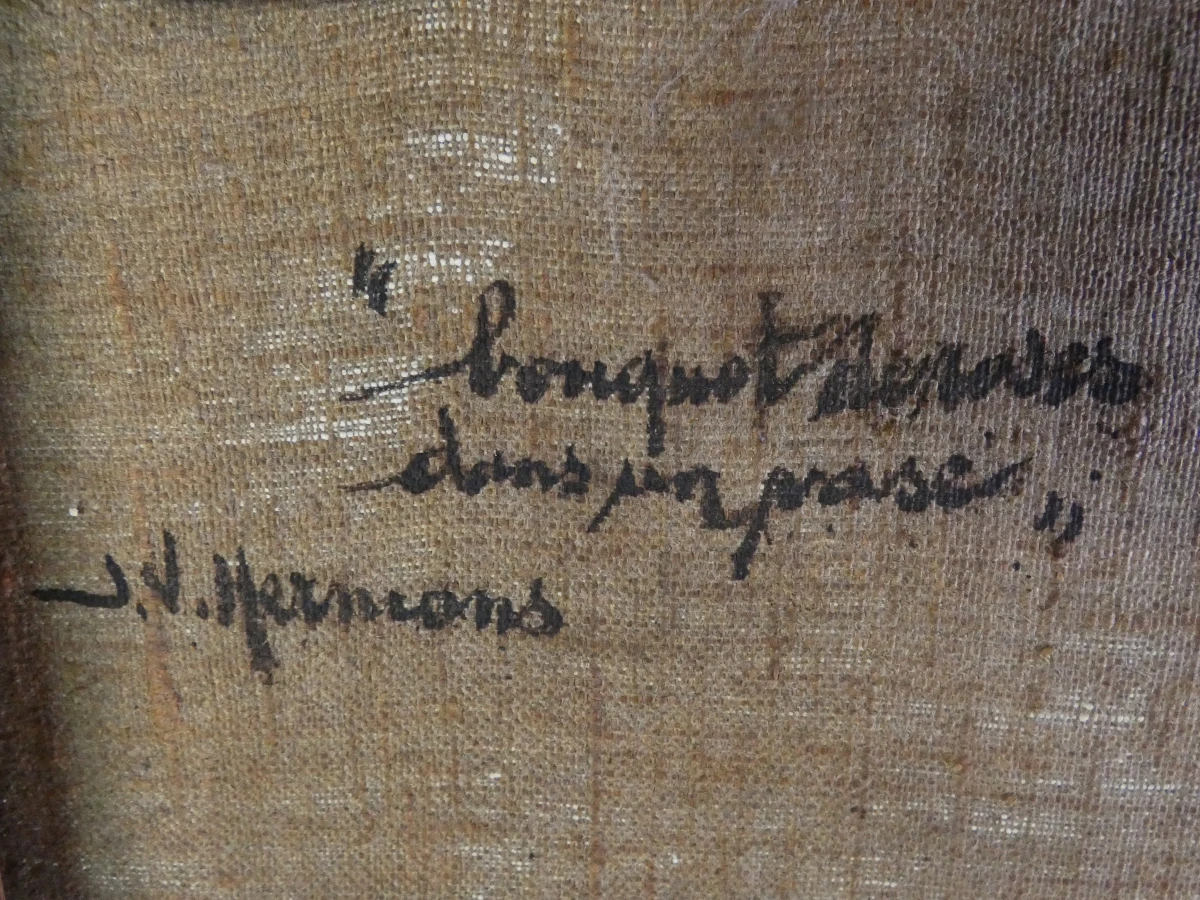 "bouquet de roses
dans un vase"
J.V. Hermans